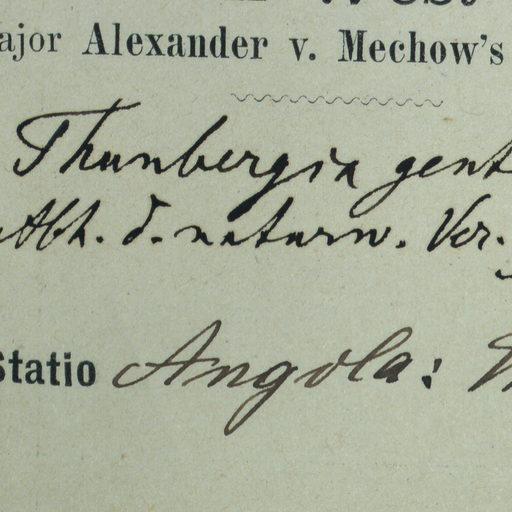 ajor Alexander v. Mechow's
Thunbergia gent
Abh. d. naturw. Ver.
Statio Angola: